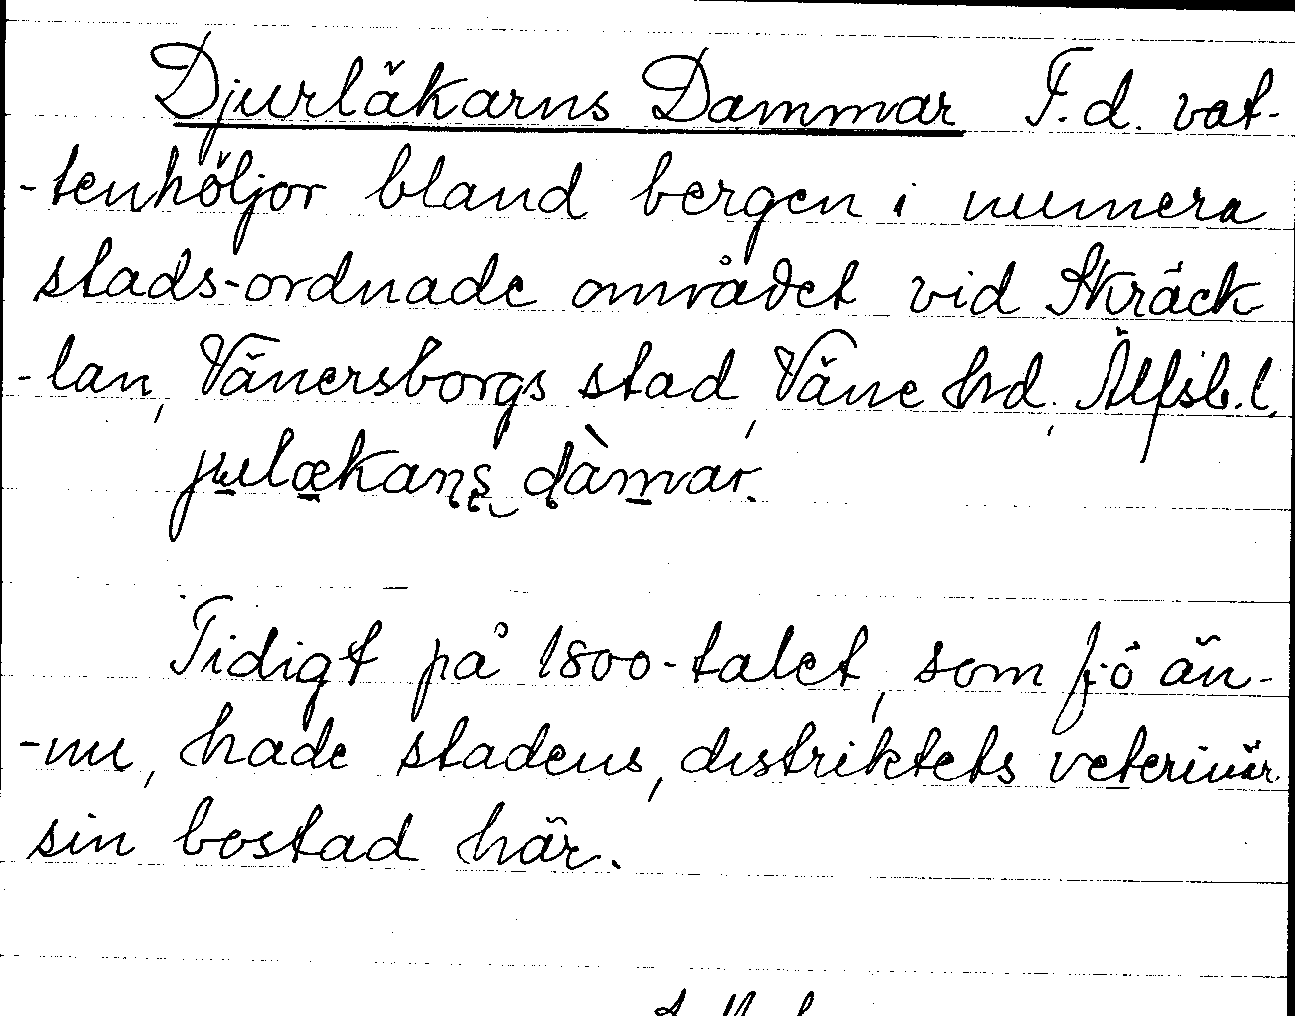 Djurläkarns Dammar F.d. vat-
-tenhöljor bland bergen i numera
stads-ordnade området vid Skräck
-lan, Vänersborgs stad, Väne hd, Älfsb.l.
julækans dàmar.
Tidigt på 1800-talet, som än-
-nu, hade stadens, distriktets veterinär
sin bostad här.